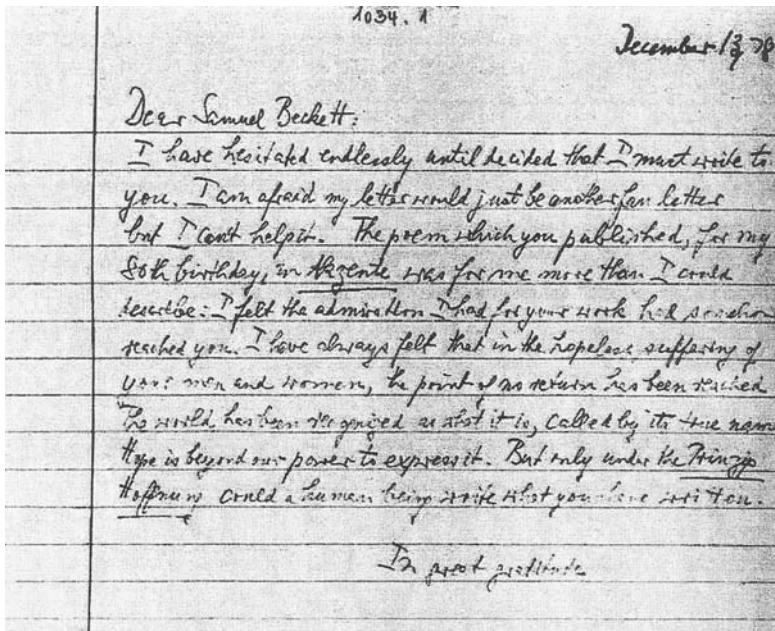 1034.1
December 13, 78
Dear Samuel Beckett:
I have hesitated endlessly until decided that I must write to
you. I am afraid my letter would just be another fan letter
but I can't help it. The poem which you published, for my
80th birthday, in Akzente was for me more than I could
describe: I felt the admiration I had for your work had somehow
reached you. I have always felt that in the hopeless suffering of
your men and women, the point of no return has been reached
The world has been recognized as what it is, called by its true name
Hope is beyond our power to express it. But only under the Prinzip
Hoffnung could a human being write what you have written.
In great gratitude